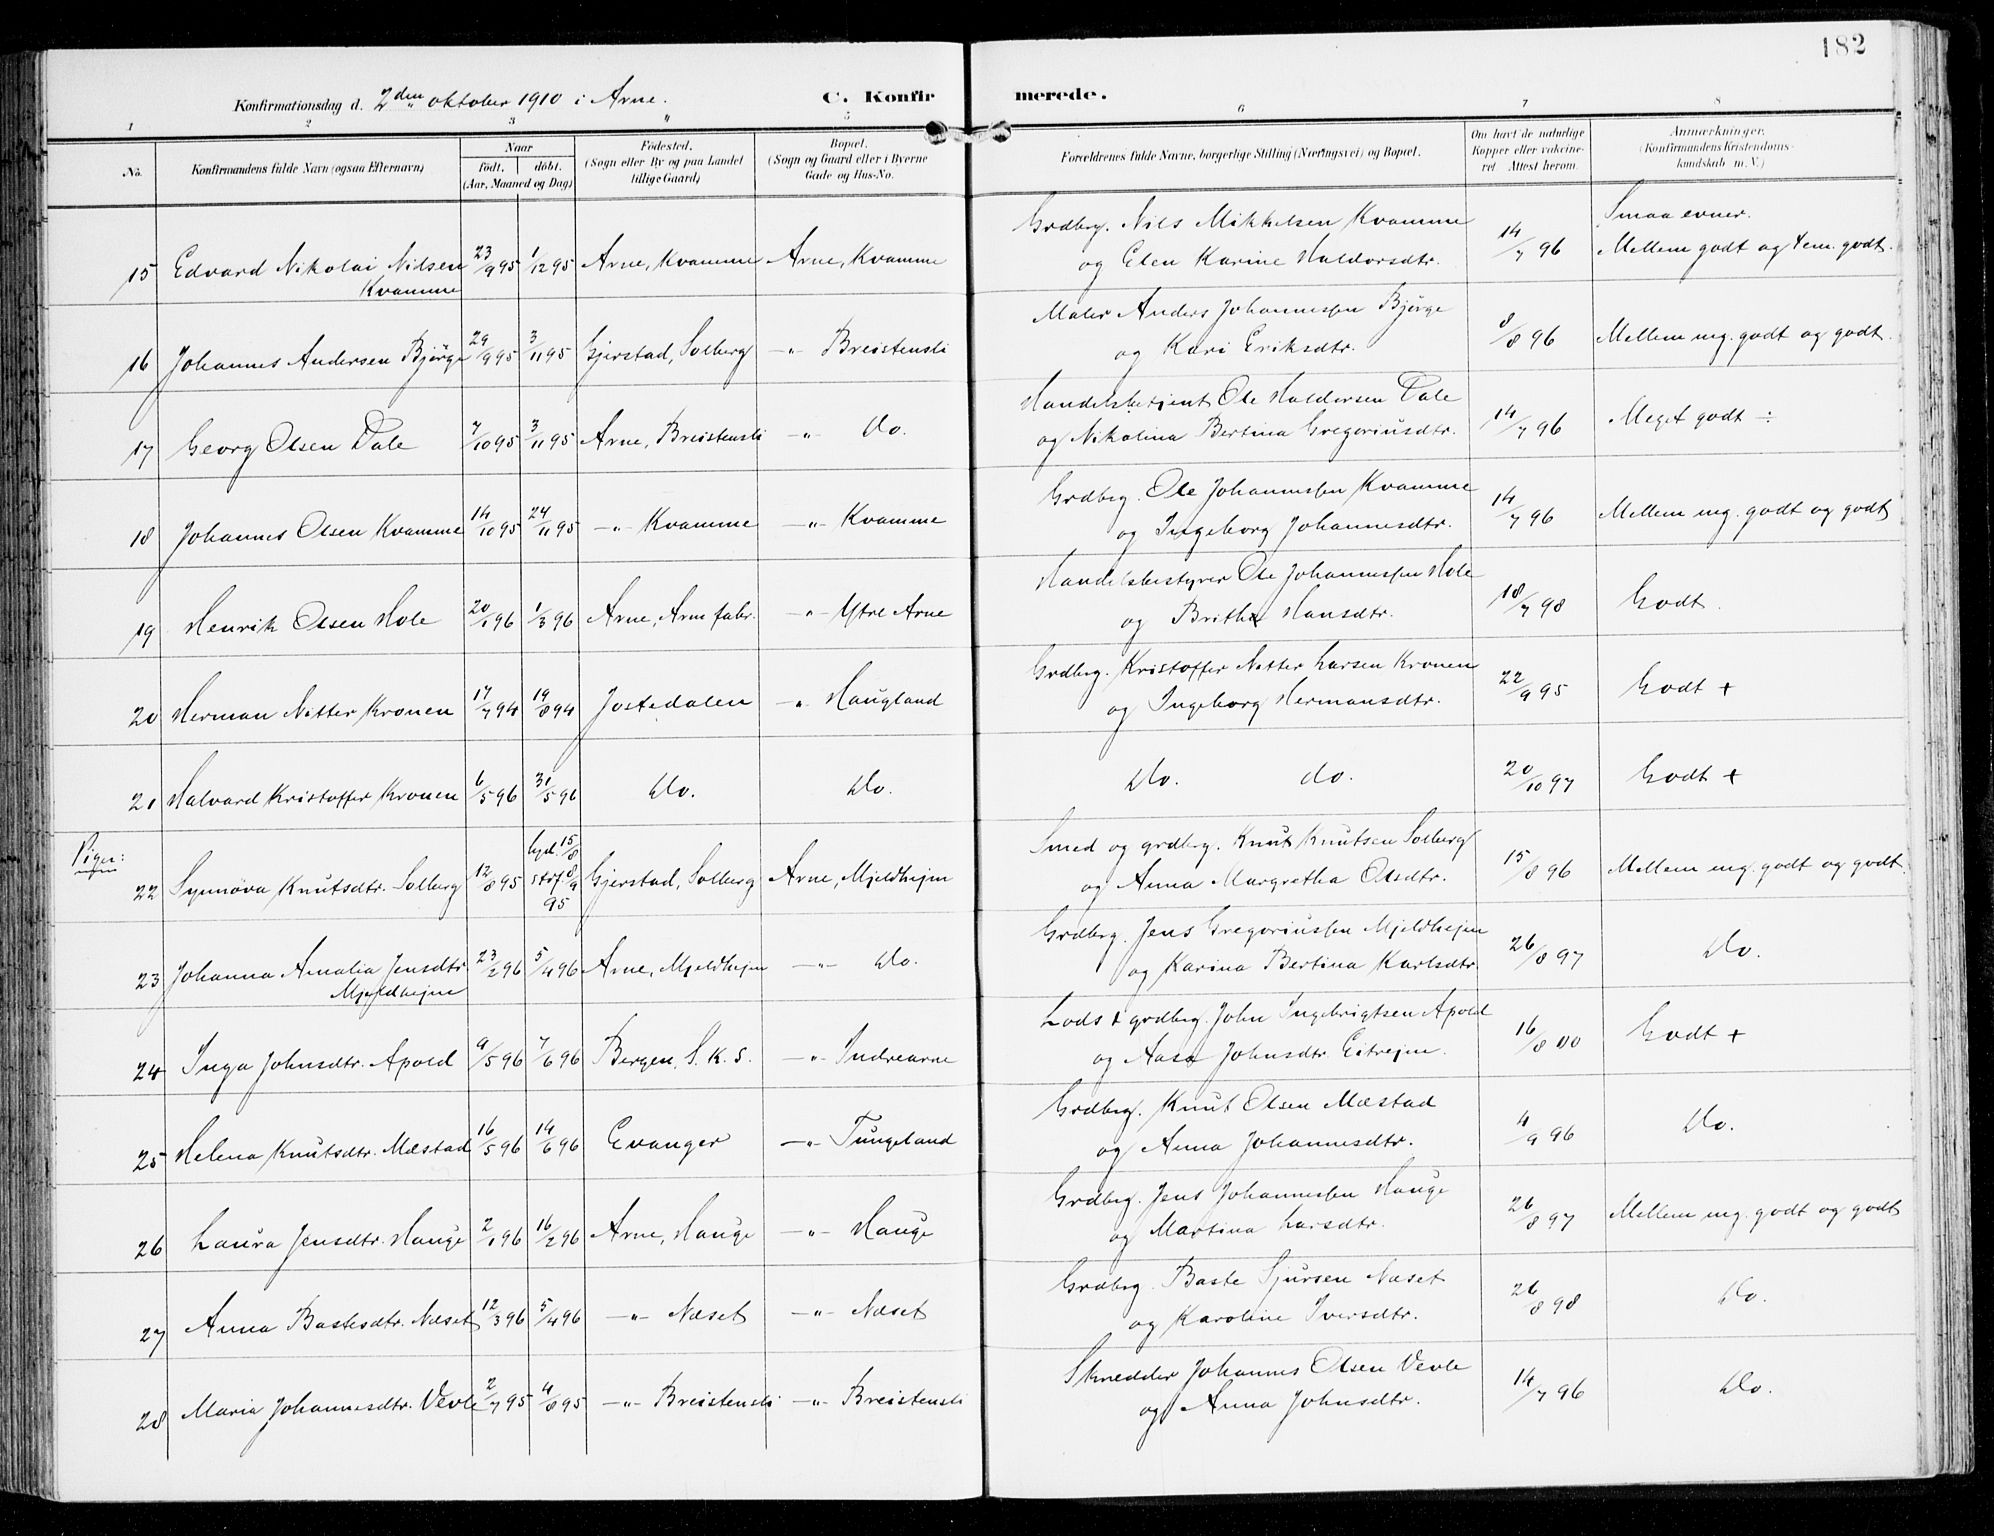 182
Konfirmationsdag d. 2den oktober 1910 i Arne.
C. Konfirmerede.
1 2 3 " 5 6 7 8
No. Konfirmandens fulde Navn (ogsaa Efternavn) Naar födt. döbt. (Aar, Maaned og Dag) Födested. (Sogn eller By og paa Landet tillige Gaard) Bopæl. (Sogn og Gaard eller i Byerne Gade og Hus-No. Forældrenes fulde Navne, borgerlige Stilling (Næringsvei) og Bopæl. Om havt de naturlige Kopper eller vakcineret Attest herom. Anmærkninger. (Konfirmandens Kristendomskundskab m. V.)
15 Edvard Nikolai Nilsen Kvamme 23/9 95 1/12 95 Arne, Kvamme Arne, Kvamme Grdbrg. Nils Mikkelsen Kvamme og Elen Karine Haldorsdtr. 14/7 96 Smaa evner. Mellem godt og tem. godt.
16 Johannes Andersen Björge 29/9 95 3/11 95 Gjerstad, Solberg -"- Breistensli Maler Anders Johannessen Björge og Kari Eriksdtr. 8/8 96 Mellem mg. godt og godt.
17 Georg Olsen Dale 7/10 95 3/11 95 Arne, Breistensli -"- Do. Handelsbetjent Ole Haldorsen Dale og Nikolina Bertina Gregoriusdtr. 14/7 96 Meget godt ÷
18 Johannes Olsen Kvamme 14/10 95 24/11 95 -"- Kvamme -"- Kvamme Grdbrg. Ole Johannessen Kvamme og Ingeborg Johannesdtr. 14/7 96 Mellem mg. godt og godt
19 Henrik Olsen Hole 20/1 96 1/3 96 Arne, Arne fabr. -"- Ytre Arne Handelsbestyrer Ole Johannessen Hole og Britha Hansdtr. 18/7 98 Godt.
20 Herman Nitter Kronen 17/7 94 19/8 94 Jostedalen -"- Haugland Grdbrg. Kristoffer Nitter Larsen Kronen og Ingeborg Hermansdtr. 22/9 95 Godt +
21 Halvard Kristoffer Kronen 6/5 96 31/5 96 Do. Do. Do. do. 20/10 97 Godt +
Piger:
22 Synnöva Knutsdtr. Solberg 12/8 95 hjd. 15/8 stdf. 8/9 95 Gjerstad, Solberg Arne, Mjeldhejm Smed og grdbrg. Knut Knutsen Solberg og Anna Margretha Olsdtr. 15/8 96 Mellem mg. godt og godt.
23 Johanna Amalia Jensdtr. Mjeldhejm 23/2 96 5/4 96 Arne, Mjeldhejm -"- Do. Grdbrg. Jens Gregoriussen Mjeldhejm og Karina Bertina Karlsdtr. 26/8 97 Do.
24 Inga Johnsdtr. Apold 9/5 96 7/6 96 Bergen, S. K. S. -"- Indrearne Lods & grdbrg. John Ingebrigtsen Apold og Aasa Johnsdtr. Eitrejm. 16/8 00 Godt +
25 Helena Knutsdtr. Mæstad 16/5 96 14/6 96 Evanger -"- Tungeland Grdbrg. Knut Olsen Mæstad og Anna Johannesdtr. 4/9 96 Do.
26 Laura Jensdtr. Hauge 2/1 96 16/2 96 Arne, Hauge -"- Hauge Grdbrg. Jens Johannessen Hauge og Martina Larsdtr. 26/8 97 Mellem mg. godt og godt
27 Anna Bastesdtr. Næset 12/3 96 5/4 96 -"- Næset -"- Næset Grdbrg. Baste Sjursen Næset og Karoline Iversdtr. 26/8 98 Do.
28 Maria Johannesdtr. Vevle 2/7 95 4/8 95 -"- Breistensli -"- Breistensli Skredder Johannes Olsen Vevle og Anna Johnsdtr. 14/7 96 Do.